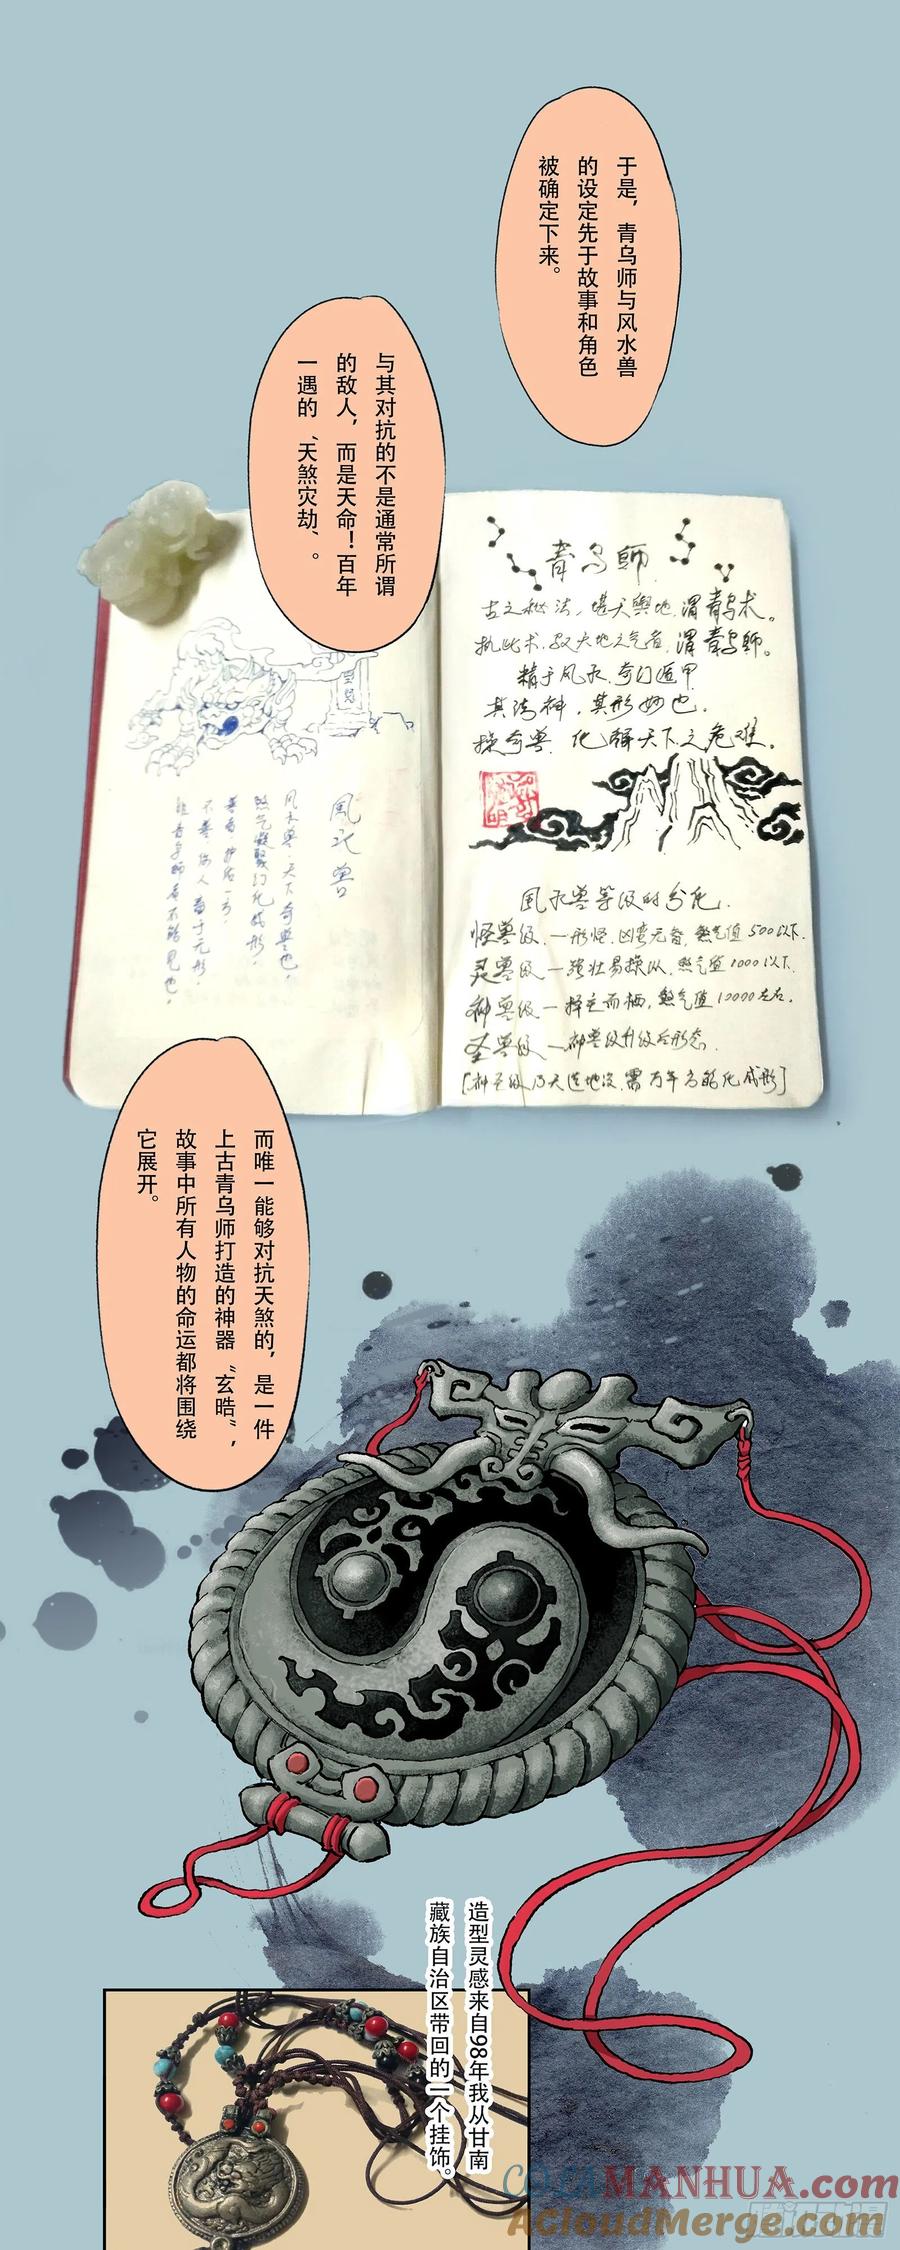 于是，青乌师与风水兽
的设定先于故事和角色
被确定下来。
与其对抗的不是通常所谓
的敌人，而是天命！百年
一遇的“天煞灾劫”。
青乌師
古之秘法，堪天舆地，谓青乌术。
执此术，驭大地之气者，谓青乌師。
精于风水，奇门遁甲
其法神，其形妙也.
操奇兽，化解天下之危难。
風水兽
风水兽，天下奇兽也，
煞气凝聚幻化成形，
善者，护佑一方，
不善，伤人畜于元形，
非青乌師者不能見也。
風水兽等级的分化.
怪兽级 — 形怪，凶蛮无智，煞气值500以下.
灵兽级 — 强壮易操纵，煞气值1000以下.
神兽级 — 择主而栖，煞气值10000左右.
圣兽级 — 神兽级升级后形态.
[神圣级乃天造地设，需万年方能化成形]
而唯一能够对抗天煞的，是一件
上古青乌师打造的神器“玄晧”，
故事中所有人物的命运都将围绕
它展开。
造型灵感来自98年我从甘南
藏族自治区带回的一个挂饰。
COLAMANHUA.com
AcloudMerge.com
腾讯动漫